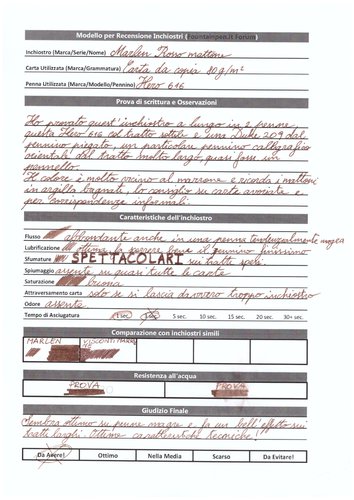 Modello per Recensione Inchiostri (Fountainpen.it Forum)
Inchiostro (Marca/Serie/Nome) Marlen Rosso mattone
Carta Utilizzata (Marca/Grammatura) Carta da copia 80 g/m²
Penna Utilizzata (Marca/Modello/Pennino) Hero 616
Prova di scrittura e Osservazioni
Ho provato quest'inchiostro a lungo in 2 penne
questa Hero 616 col tratto sottile e Duke 209 dal
pennino piegato, un particolare pennino calligrafico
orientale dal tratto molto largo, quasi fosse un
pennello.
Il colore è molto vicino al marrone e ricorda i mattoni
in argilla bagnati, lo consiglio su carte avoriate e
per corrispondenze informali.
Caratteristiche dell'inchiostro
Flusso abbondante anche in una penna tendenzialmente magra
Lubrificazione ottima la penna il pennino
Sfumature SPETTACOLARI su tratti spessi.
Spiumaggio assente su quasi tutte le carte
Saturazione buona
Attraversamento carta solo se si lascia davvero troppo inchiostro
Odore assente
Tempo di Asciugatura 1 sec. 5 sec. 10 sec. 15 sec. 20 sec. 30+ sec.
Comparazione con inchiostri simili
MARLEN VISCONTI
Resistenza all'acqua
PROVA PROVA
Giudizio Finale
Sembra ottimo su penne magre e fa un bell'effetto sui
tratti larghi. Ottime caratteristiche tecniche!
Da Avere! Ottimo Nella Media Scarso Da Evitare!